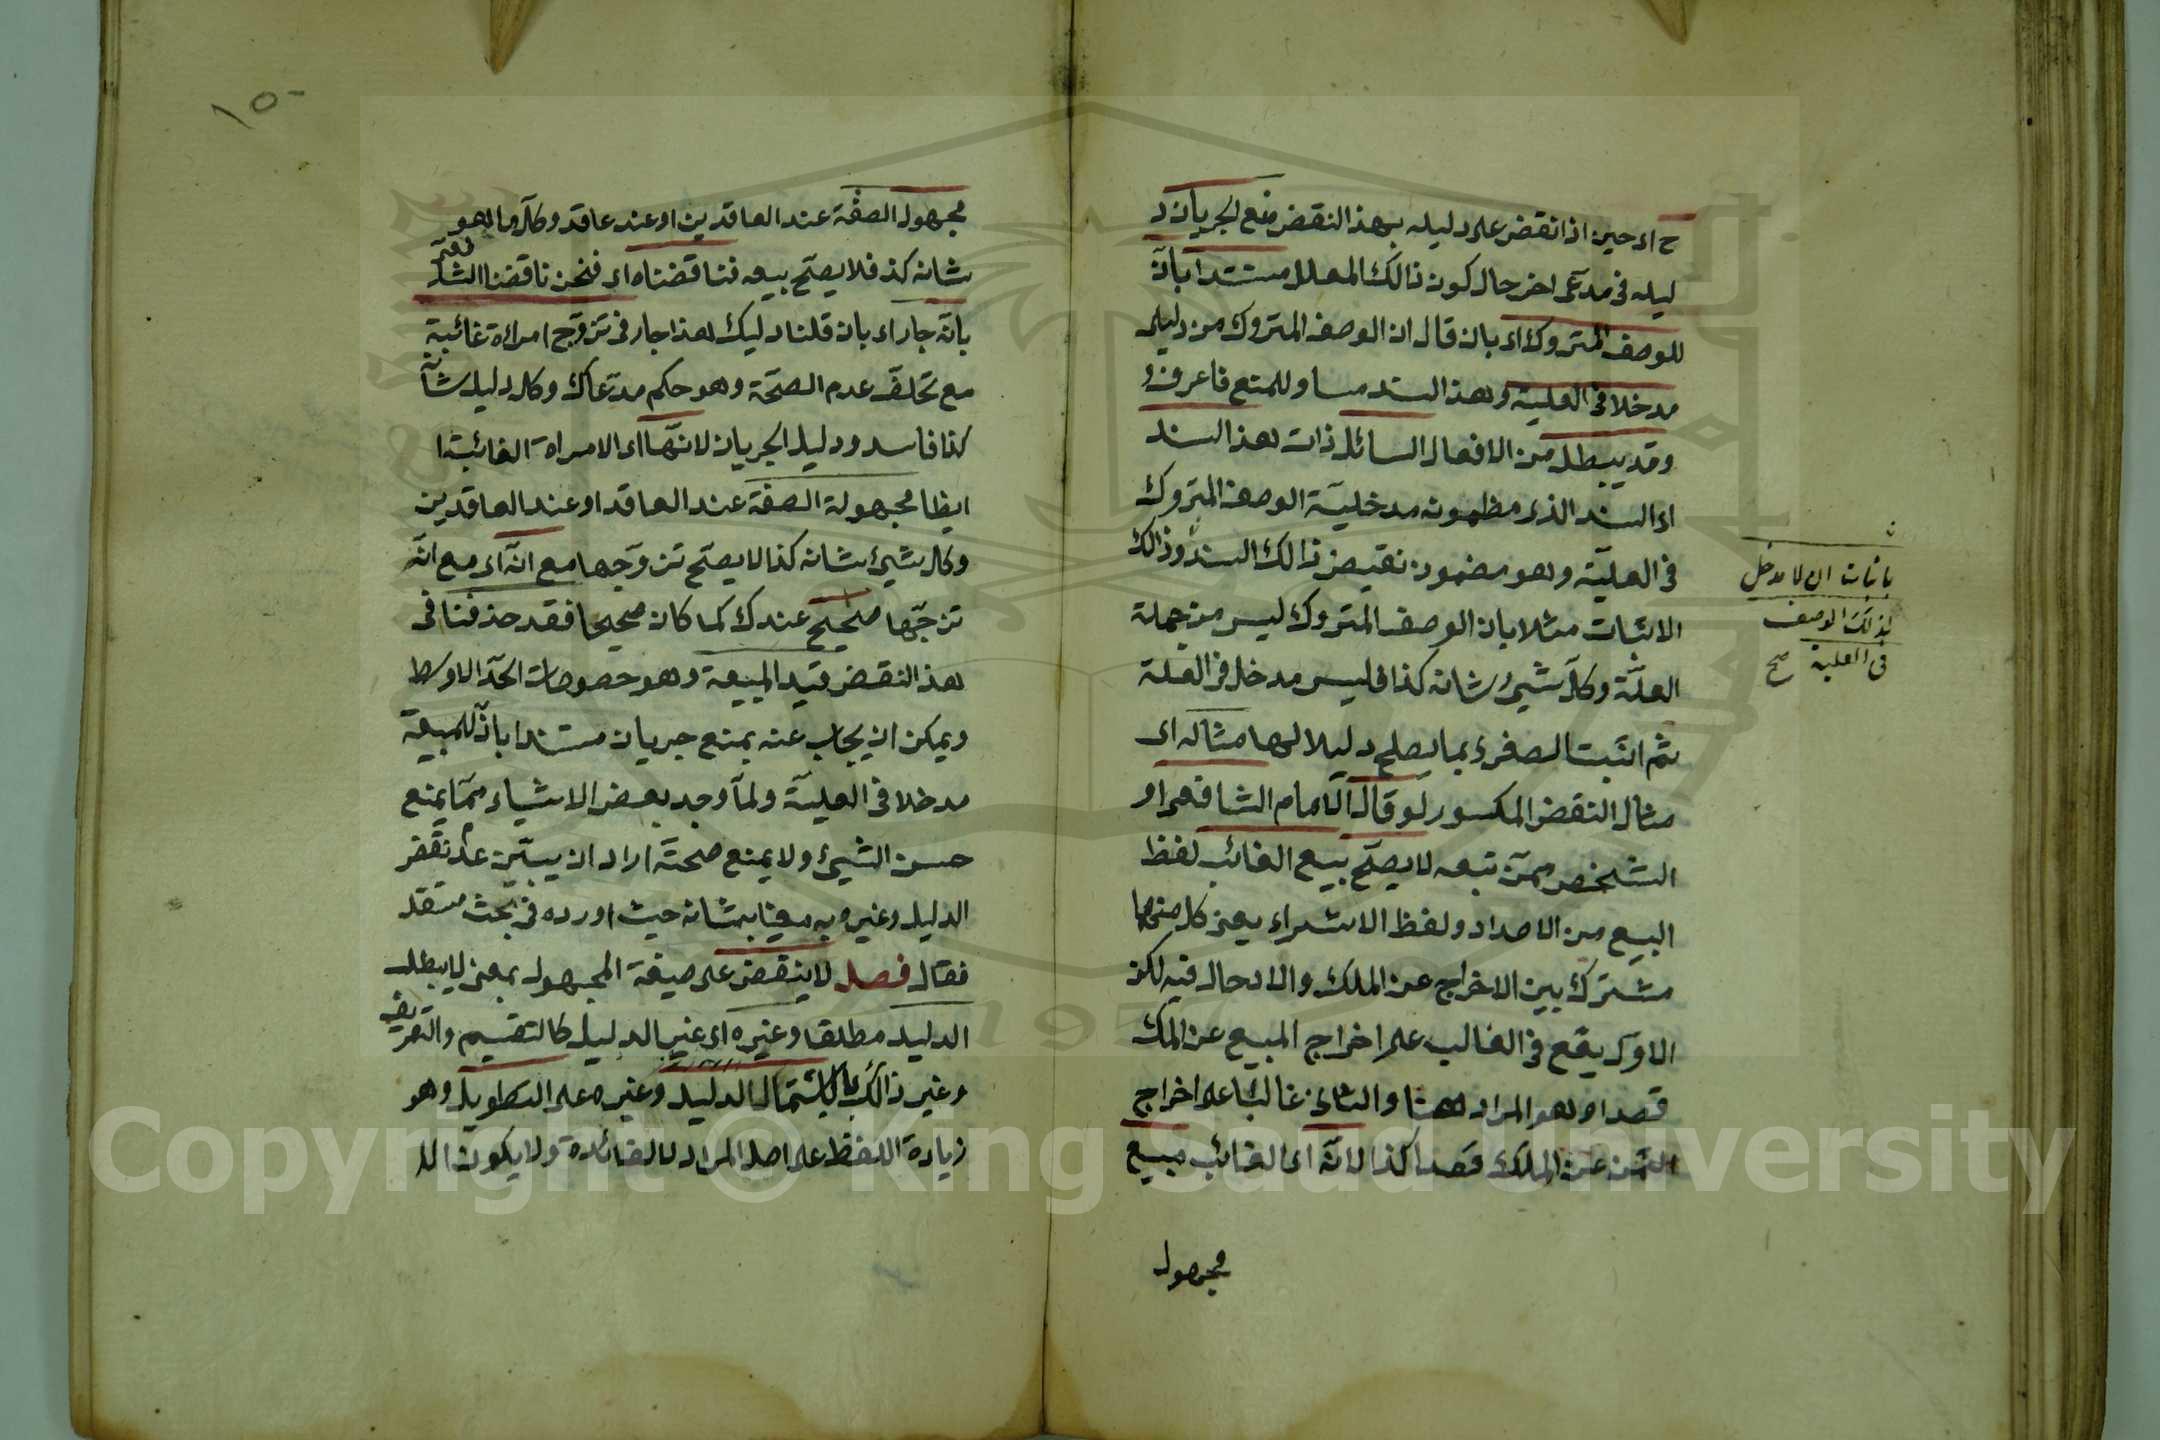 ح اى حين اذ انقض على دليله بهذ النقض منع الجريان د
ليله فى مدعى اخر حال كون ذالك المعلل مستندا بان
للوصف المتروك اى بان قال ان الوصف المتروك من دليلى
مدخلا فى العلية وهذ السند مساو للمنع فاعرف
وقد يبطل من الافعال السائل ذات هذ السند
اى السند الذى مظمونه مدخلية الوصف المتروك
فى العلية وهو مضمون نقيض ذالك السند وذالك
الاثبات مثلا بان الوصف المتروك ليس من جملة
العلة وكل شيئ شانه كذا فليس مدخل فى العلة
ثم اثبت الصغرى بما يصلح دليلا لها مثاله اى
مثال النقض المكسور لو قال الامام الشافعى او
الشخص ممن تبعه لا يصح بيع الغائب لفظ
البيع من الاضداد ولفظ الاشراء يعنى كل منهما
مشترك بين الاخراج عن الملك والادخال فيه لكن
الاول يقع فى الغالب على اخراج المبيع عن الملك
قصدا وهو المراد ههنا والثانى غالبا على اخراج
الثمن عن الملك قصدا كذا لانه اى الغائب مبيع
مجهول
باثبات ان لا مدخل
لذلك الوصف
فى العلية صح
١٥٠
مجهول الصفة عند العاقدين او عند عاقد وكل ما هو
شانه كذ فلا يصح بيعه فناقضناه اى فنحن ناقضنا الشافعى
بانه جار اى بان قلنا دليلك هذا جار فى تزوج امراة غائبة
مع تخلف عدم الصحة وهو حكم مدعاك وكل دليل شانه
كذا فاسد ودليل الجريان لانها اى الامراة الغائبة
ايظا مجهولة الصفة عند العاقد او عند العاقدين
وكل شيئ شانه كذا لا يصح تزوجها مع انه اى مع انه
تزجها صحيح عندك كما كان صحيحا فقد حذفنا فى
هذ النقض قيد المبيعة وهو خصوصات الحد الاوسط
ويمكن ان يجاب عنه بمنع جريان مستندا بان للمبيعة
مدخلا فى العلية ولما وجد بعض الاشياء مما يمنع
حسن الشيئ ولا يمنع صحته اراد ان يبين عدم نقض
الدليل وغيره به معينا بشانه حيث اورده فى بحث مستقل
فقال فصل لا ينقض على صيغة المجهول بمعنى لا يبطل
الدليل مطلقا وغيره اى غير الدليل كالتقسيم والتعريف
وغير ذالك باشتمال الدليل وغيره على التطويل وهو
زيادة اللفظ على اصل المراد لا لفائدة ولا يكون الل